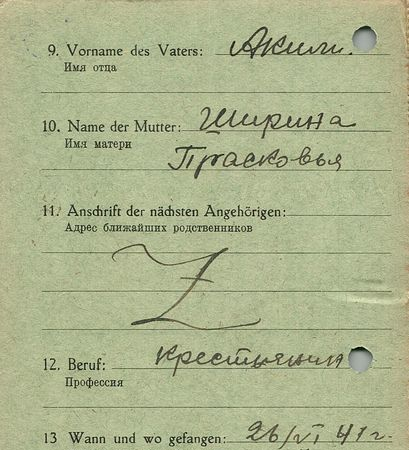 9. Vorname des Vaters: Аким.
Имя отца
10. Name der Mutter: Ширина
Имя матери
Прасковья
11. Anschrift der nächsten Angehörigen:
Адрес ближайших родственников
Z
12. Beruf: крестьянин
Профессия
13 Wann und wo gefangen: 26/VI 41 г.